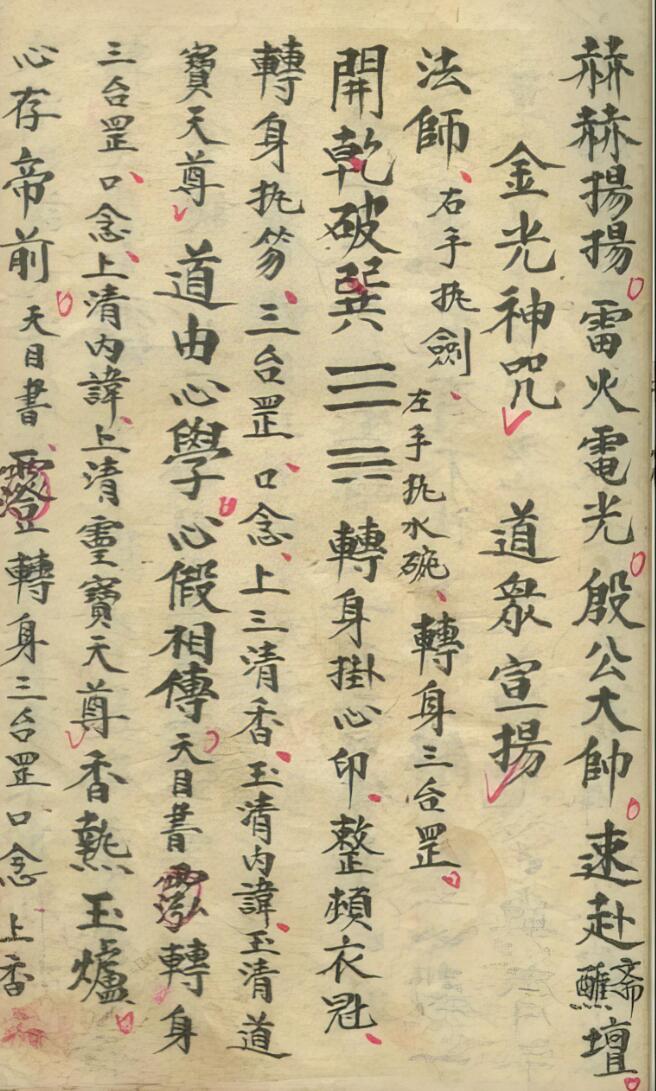 赫赫揚揚雷火電光殷公大帥速赴醮斋壇
金光神咒道衆宣揚
法師右手执劍左手执水碗轉身三台罡
開乾破巽☰☴轉身掛心印整頓衣冠
轉身执笏三台罡口念上三清香玉清内諱玉清道
寶天尊道由心學心假相傳天目書轉身
三台罡口念上清内諱上清靈寶天尊香爇玉爐
心存帝前天目書轉身三台罡口念上香